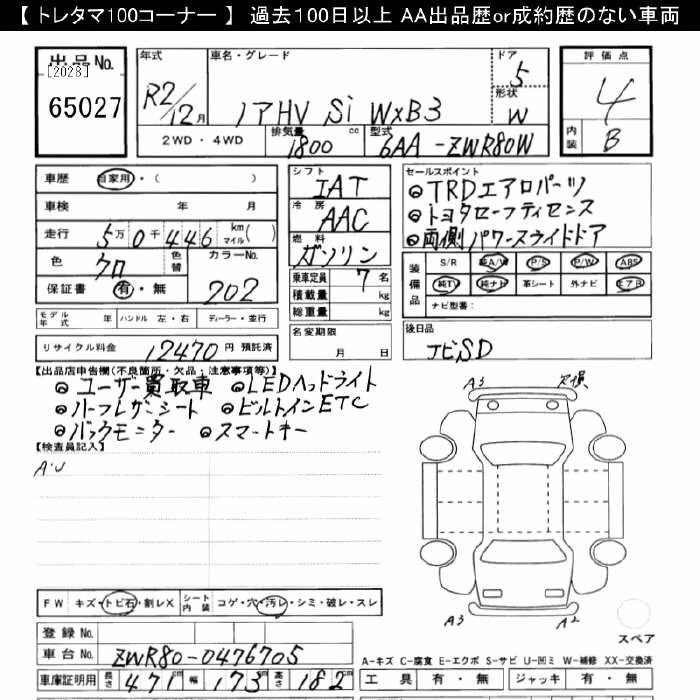 【 トレタマ100コーナー 】 過去100日以上 AA出品歴or成約歴のない車両
出品No. [2028] 65027
年式 R2/12月
車名・グレード ノアHV Si W×B3
ドア 5
形状 W
評価点 4
内装 B
2WD・4WD 排気量 1800 cc 型式 6AA-ZWR80W
車歴 自家用・( )
車検 年 月
走行 5万0千446 km マイル( )
色 クロ 色替 カラーNo. 202
保証書 有・無
シフト IAT
冷房 AAC
燃料 ガソリン
乗車定員 7名
積載量 kg
総重量 kg
セールスポイント
◎TRDエアロパーツ
◎トヨタセーフティセンス
◎両側パワースライドドア
装備品 S/R 純A/W P/S P/W ABS
純TV 純ナビ 革シート 外ナビ エアB
ナビ型番:
モデル年式 年 ハンドル 左・右 ディーラー・並行
名変期限 月 日
後日品
ナビSD
リサイクル料金 12470円 預託済
【出品店申告欄(不良箇所・欠品・注意事項等)】
◎ユーザー買取車 ◎LEDヘッドライト
◎ハーフレザーシート ◎ビルトインETC
◎バックモニター ◎スマートキー
【検査員記入】
A・U
A3 欠損
A3 A2
スペア
FW キズ・トビ石・割レX シート内装 コゲ・穴・汚レ・シミ・破レ・スレ
登録No.
車台No. ZWR80-0476705
車庫証明用 長さ 471cm 幅 173cm 高さ 182cm
A-キズ C-腐食 E-エクボ S-サビ U-凹ミ W-補修 XX-交換済
工具 有・無 ジャッキ 有・無